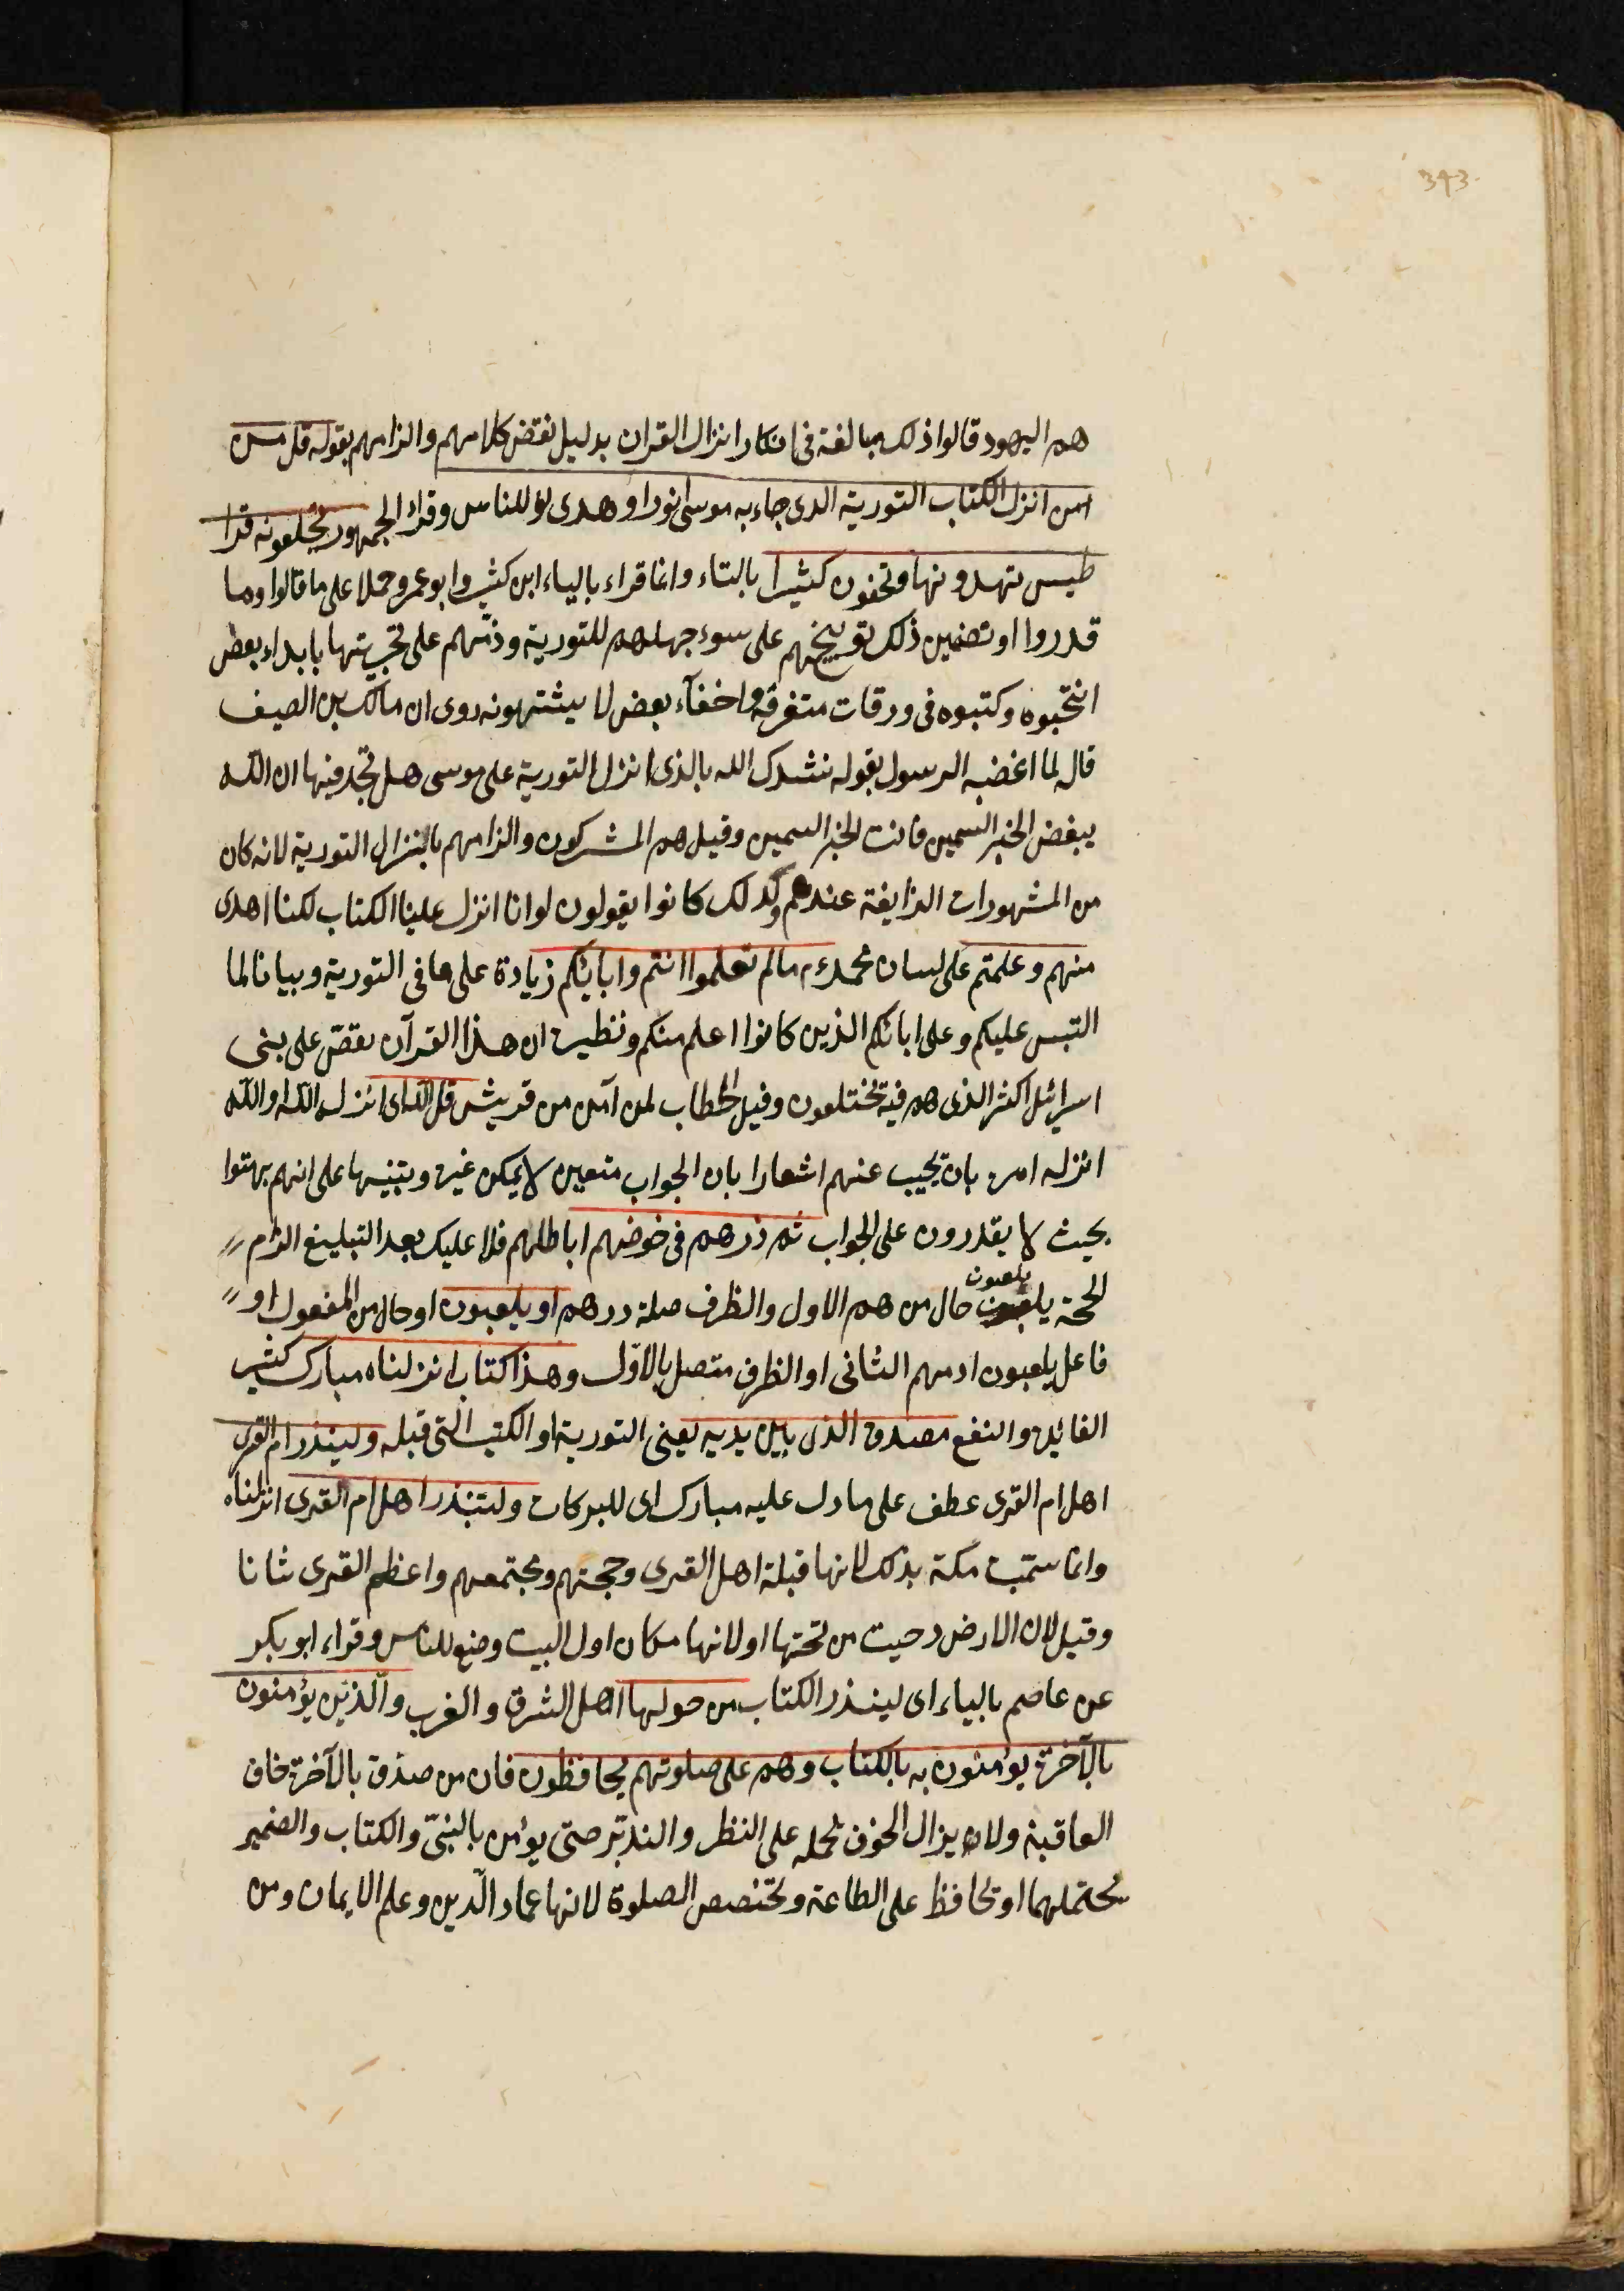 343
هم اليهود قالوا ذلك مبالغة فى انكار انزال القران بدليل نقض كلامهم والزامهم بقوله قل من
امن انزل الكتاب التورية الذى جاء به موسى نورا وهدى للناس وقراء الجمهور تجعلونه قرا
طيس تبدونها وتخفون كثيرا بالتاء وانما قراء بالياء ابن كثير وابو عمرو حملا على ما قالوا وما
قدروا او تضمين ذلك توبيخهم على سوء جهلهم للتورية وذمّهم على تجزيتها بابداء بعض
انتخبوه وكتبوه فى ورقات متفرقة واخفآء بعض لا يشتهونه روى ان مالك بن الصيف
قال لما اغضبه الرسول بقوله ننشدك الله بالذى انزل التورية على موسى هل تجد فيها ان الله
يبغض الحبر السمين فانت الحبر السمين وقيل هم المشركون والزامهم بانزال التورية لانه كان
من المشهورات الذايعة عندهم ولذلك كانوا يقولون لو انا انزل علينا الكتاب لكنا اهدى
منهم وعلمتم على لسان محمد ء م مالم تعلموا انتم وابائكم زيادة على ما فى التورية وبيانا لما
التبس عليكم وعلى ابائكم الذين كانوا اعلم منكم ونظيره ان هذا القرآن يقصّ على بنى
اسرائل اكثر الذى هم فيه يختلفون وقيل الخطاب لمن آمن من قريش قل الله اى انزله الله او الله
انزله امره بان يجيب عنهم اشعارا بان الجواب متعين لا يمكن غيره وتنبيها على انهم بهتوا
بحيث لا يقدرون على الجواب ثم ذرهم فى خوضهم اباطلهم فلا عليك بعد التبليغ الزام
يلعبون
الحجة يلعبون حال من هم الاول والظرف صلة ذرهم او يلعبون او حال من المفعول او
فاعل يلعبون او مهم الثانى او الظرف متصل بالاوّل وهذا كتاب انزلناه مبارك كثير
الفائدة والنفع مصدق الذى بين يديه يعنى التورية او الكتب التى قبله ولينذر ام القرى
اهل ام القرى عطف على ما دل عليه مبارك اى للبركات ولتنذر اهل ام القرى انزلناه
وانما سمّيت مكة بذلك لانها قبلة اهل القرى وحجتهم ومجتمعهم واعظم القرى شانا
وقيل لان الارض دحيت من تحتها او لانها مكان اول البيت وضع للناس وقراء ابو بكر
عن عاصم بالياء اى لينذر الكتاب من حولها اهل الشرق والغرب والّذين يؤمنون
بالآخرة يؤمنون به بالكتاب وهم على صلوتهم يحافظون فان من صدّق بالآخرة خاف
العاقبة ولا يزال الخوف يحمله على النظر والتدبّر حتى يؤمن بالنبىّ والكتاب والضمير
يحتملهما او يحافظ على الطاعة وتخصص الصلوة لانها عماد الّدين وعلم الايمان ومن